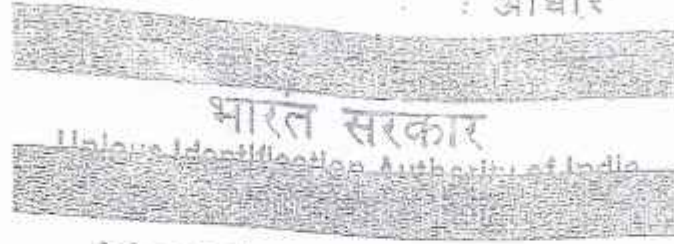 : आधार
भारत सरकार
Unique Identification Authority of India